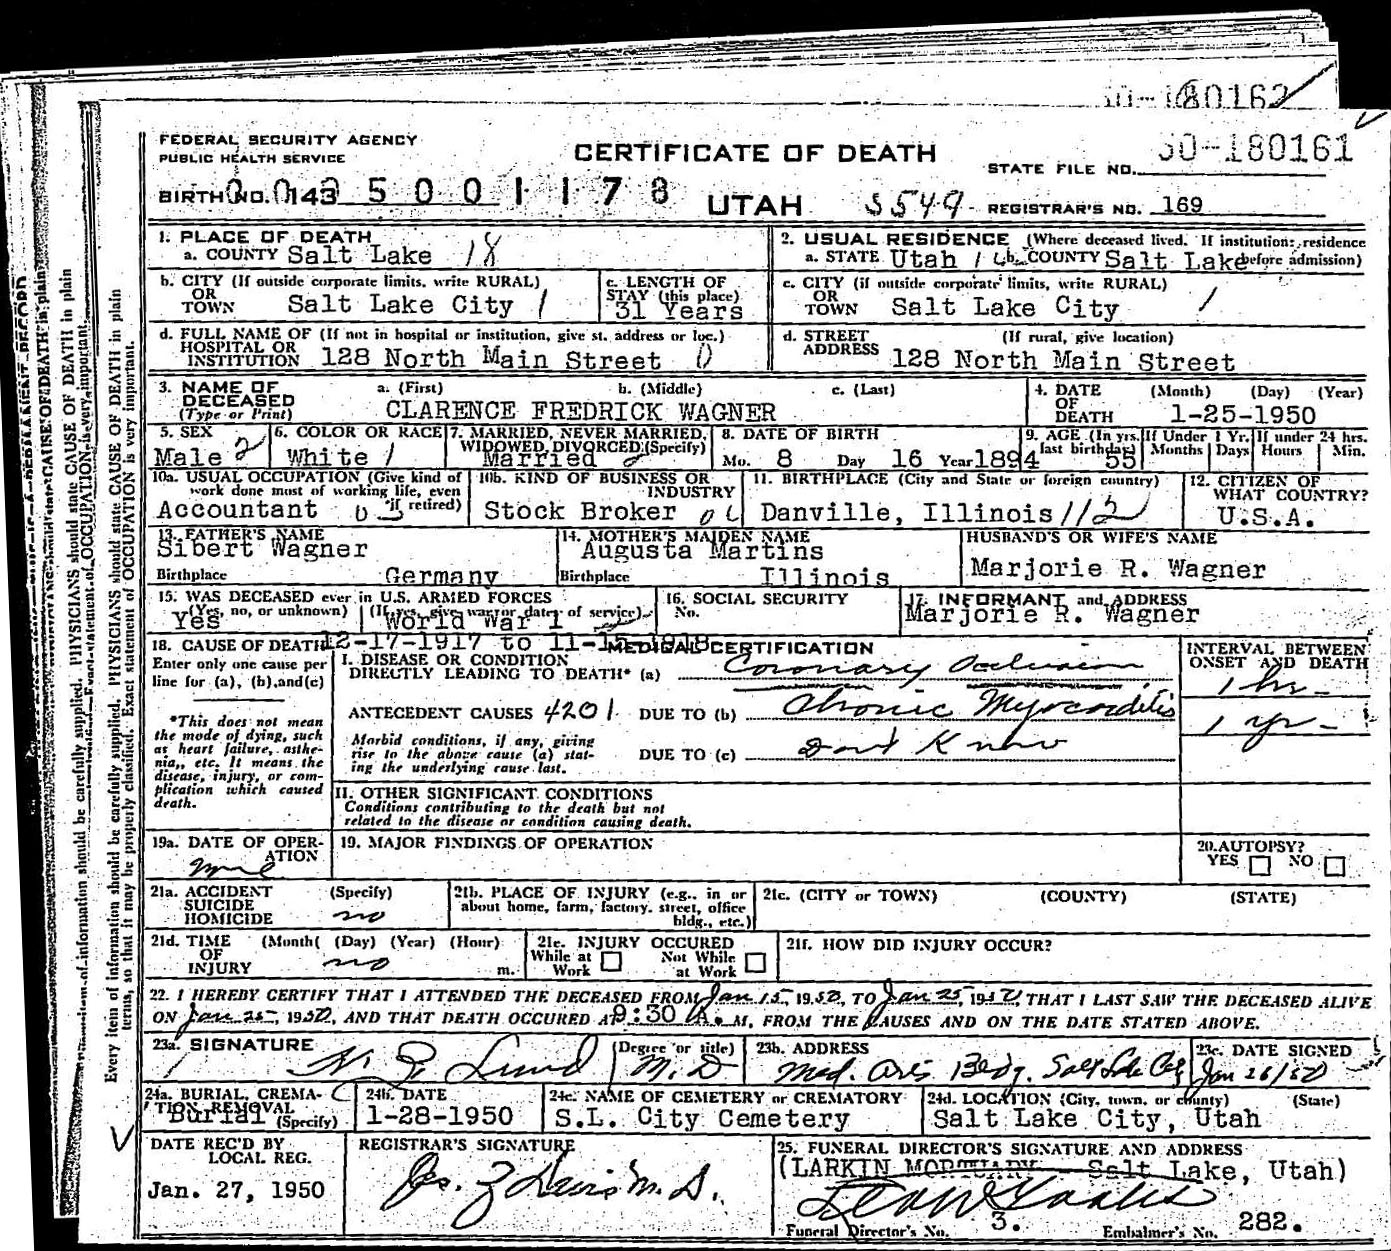 180162
FEDERAL SECURITY AGENCY
PUBLIC HEALTH SERVICE
CERTIFICATE OF DEATH
STATE FILE NO. 50-180161
BIRTH NO. 143 5 0 0 1 1 7 8
UTAH
S549
REGISTRAR'S NO. 169
1. PLACE OF DEATH
a. COUNTY Salt Lake 18
2. USUAL RESIDENCE (Where deceased lived. If institution: residence
a. STATE Utah b. COUNTY Salt Lake before admission)
b. CITY (If outside corporate limits, write RURAL)
OR
TOWN Salt Lake City 1
c. LENGTH OF
STAY (this place)
31 Years
c. CITY (if outside corporate limits, write RURAL)
OR
TOWN Salt Lake City 1
d. FULL NAME OF (If not in hospital or institution, give st. address or loc.)
HOSPITAL OR
INSTITUTION 128 North Main Street 0
d. STREET (If rural, give location)
ADDRESS 128 North Main Street
3. NAME OF a. (First) b. (Middle) c. (Last)
DECEASED
(Type or Print) CLARENCE FREDRICK WAGNER
4. DATE (Month) (Day) (Year)
OF
DEATH 1-25-1950
5. SEX
Male 2
6. COLOR OR RACE
White 1
7. MARRIED, NEVER MARRIED,
WIDOWED, DIVORCED (Specify)
Married 2
8. DATE OF BIRTH
Mo. 8 Day 16 Year 1894
9. AGE (In yrs. last birthday) 55
If Under 1 Yr. Months Days
If under 24 hrs. Hours Min.
10a. USUAL OCCUPATION (Give kind of
work done most of working life, even
if retired)
Accountant
10b. KIND OF BUSINESS OR
INDUSTRY
Stock Broker
11. BIRTHPLACE (City and State or foreign country)
Danville, Illinois
12. CITIZEN OF
WHAT COUNTRY?
U.S.A.
13. FATHER'S NAME
Sibert Wagner
Birthplace Germany
14. MOTHER'S MAIDEN NAME
Augusta Martins
Birthplace Illinois
HUSBAND'S OR WIFE'S NAME
Marjorie R. Wagner
15. WAS DECEASED ever in U.S. ARMED FORCES
(Yes, no, or unknown) (If yes, give war or dates of service)
Yes World War 1
12-17-1917 to 11-15-1918
16. SOCIAL SECURITY
No.
17. INFORMANT and ADDRESS
Marjorie R. Wagner
18. CAUSE OF DEATH
Enter only one cause per
line for (a), (b), and (c)
*This does not mean
the mode of dying, such
as heart failure, asthe-
nia, etc. It means the
disease, injury, or com-
plication which caused
death.
MEDICAL CERTIFICATION
I. DISEASE OR CONDITION
DIRECTLY LEADING TO DEATH* (a) Coronary Occlusion
ANTECEDENT CAUSES 4201 DUE TO (b) Chronic Myocarditis
Morbid conditions, if any, giving
rise to the above cause (a) stat-
ing the underlying cause last.
DUE TO (c) Dont Know
INTERVAL BETWEEN
ONSET AND DEATH
1 hr
1 yr
II. OTHER SIGNIFICANT CONDITIONS
Conditions contributing to the death but not
related to the disease or condition causing death.
19a. DATE OF OPER-
ATION
19. MAJOR FINDINGS OF OPERATION
20. AUTOPSY?
YES NO
21a. ACCIDENT (Specify)
SUICIDE
HOMICIDE no
21b. PLACE OF INJURY (e.g., in or
about home, farm, factory, street, office
bldg., etc.)
21c. (CITY or TOWN) (COUNTY) (STATE)
21d. TIME (Month( (Day) (Year) (Hour)
OF
INJURY no m.
21e. INJURY OCCURED
While at Work Not While at Work
21f. HOW DID INJURY OCCUR?
22. I HEREBY CERTIFY THAT I ATTENDED THE DECEASED FROM Jan 15, 1950, TO Jan 25, 1950, THAT I LAST SAW THE DECEASED ALIVE
ON Jan 25, 1950, AND THAT DEATH OCCURED AT 9:30 A. M, FROM THE CAUSES AND ON THE DATE STATED ABOVE.
23a. SIGNATURE (Degree or title) M.D
23b. ADDRESS
Med. Arts Bldg. Salt Lake City
23c. DATE SIGNED
Jan 26/50
24a. BURIAL, CREMA-
TION REMOVAL
Burial (Specify)
24b. DATE
1-28-1950
24c. NAME OF CEMETERY or CREMATORY
S.L. City Cemetery
24d. LOCATION (City, town, or county) (State)
Salt Lake City, Utah
DATE REC'D BY
LOCAL REG.
Jan. 27, 1950
REGISTRAR'S SIGNATURE
25. FUNERAL DIRECTOR'S SIGNATURE AND ADDRESS
(LARKIN MORTUARY - Salt Lake, Utah)
Funeral Director's No. 3. Embalmer's No. 282.
Every item of information should be carefully supplied. PHYSICIANS should state CAUSE OF DEATH in plain
terms, so that it may be properly classified. Exact statement of OCCUPATION is very important.